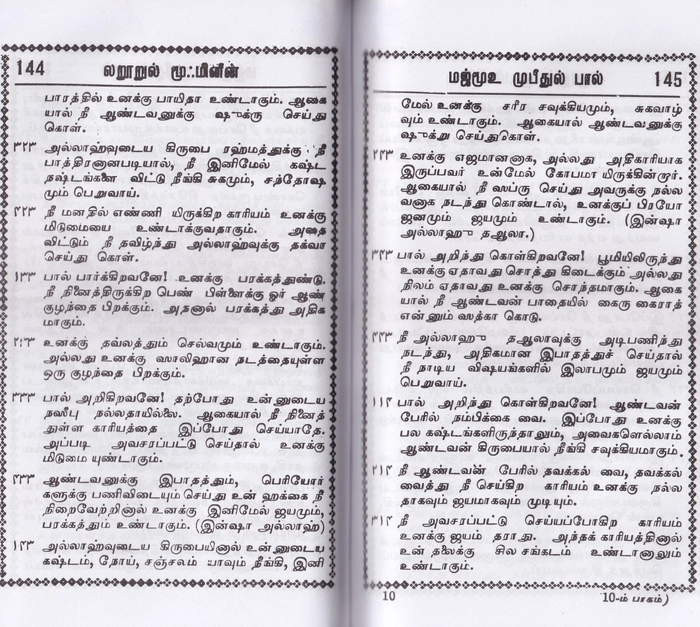 144 லறூறுல் மூஃமினீன்
பாரத்தில் உனக்கு பாயிதா உண்டாகும். ஆகை
யால் நீ ஆண்டவனுக்கு ஷுக்ரு செய்து
கொள்.
அல்லாஹ்வுடைய கிருபை ரஹ்மத்துக்கு நீ
பாத்திரனானபடியால், நீ இனிமேல் கஷ்ட
நஷ்டங்களை விட்டு நீங்கி சுகமும், சந்தோஷ
மும் பெறுவாய்.
நீ மனதில் எண்ணி யிருக்கிற காரியம் உனக்கு
மிடுமையை உண்டாக்குவதாகும். அதை
விட்டும் நீ தவிழ்ந்து அல்லாஹ்வுக்கு தக்வா
செய்து கொள்.
பால் பார்க்கிறவனே! உனக்கு பரக்கத்துண்டு.
நீ நினைத்திருக்கிற பெண் பிள்ளைக்கு ஓர் ஆண்
குழந்தை பிறக்கும். அதனால் பரக்கத்து அதிக
மாகும்.
உனக்கு தவ்லத்தும் செல்வமும் உண்டாகும்.
அல்லது உனக்கு ஸாலிஹான நடத்தையுள்ள
ஒரு குழந்தை பிறக்கும்.
٣٣٣ பால் அறிகிறவனே! தற்போது உன்னுடைய
நஸீபு நல்லதாயில்லை. ஆகையால் நீ நினைத்
துள்ள காரியத்தை இப்போது செய்யாதே.
அப்படி அவசரப்பட்டு செய்தால் உனக்கு
மிடுமை யுண்டாகும்.
ஆண்டவனுக்கு இபாதத்தும், பெரியோர்
களுக்கு பணிவிடையும் செய்து உன் ஹக்கை நீ
நிறைவேற்றினால் உனக்கு இனிமேல் ஜயமும்,
பரக்கத்தும் உண்டாகும். (இன்ஷா அல்லாஹ்)
அல்லாஹ்வுடைய கிருபையினால் உன்னுடைய
கஷ்டம், நோய், சஞ்சலம் யாவும் நீங்கி, இனி
மஜ்மூஉ முபீதுல் பால் 145
மேல் உனக்கு சரீர சவுக்கியமும், சுகவாழ்
வும் உண்டாகும். ஆகையால் ஆண்டவனுக்கு
ஷுக்று செய்துகொள்.
உனக்கு எஜமானனாக, அல்லது அதிகாரியாக
இருப்பவர் உன்மேல் கோபமா யிருக்கின்றார்.
ஆகையால் நீ ஸப்ரு செய்து அவருக்கு நல்ல
வனாக நடந்து கொண்டால், உனக்குப் பிரயோ
ஜனமும் ஜயமும் உண்டாகும். (இன்ஷா
அல்லாஹு தஆலா.)
பால் அறிந்து கொள்கிறவனே! பூமியிலிருந்து
உனக்கு ஏதாவது சொத்து கிடைக்கும் அல்லது
நிலம் ஏதாவது உனக்கு சொந்தமாகும். ஆகை
யால் நீ ஆண்டவன் பாதையில் கைரு கைராத்
என்னும் ஸக்தா கொடு.
நீ அல்லாஹு தஆலாவுக்கு அடிபணிந்து
நடந்து, அதிகமான இபாதத்துச் செய்தால்
நீ நாடிய விஷயங்களில் இலாபமும் ஜயமும்
பெறுவாய்.
பால் அறிந்து கொள்கிறவனே! ஆண்டவன்
பேரில் நம்பிக்கை வை. இப்போது உனக்கு
பல கஷ்டங்களிருந்தாலும், அவைகளெல்லாம்
ஆண்டவன் கிருபையால் நீங்கி சவுக்கியமாகும்.
நீ ஆண்டவன் பேரில் தவக்கல் வை, தவக்கல்
வைத்து நீ செய்கிற காரியம் உனக்கு நல்ல
தாகவும் ஜயமாகவும் முடியும்.
நீ அவசரப்பட்டு செய்யப்போகிற காரியம்
உனக்கு ஜயம் தராது. அந்தக் காரியத்தினால்
உன் தலைக்கு சில சங்கடம் உண்டானாலும்
உண்டாகும்.
10 10-ம் பாகம்)